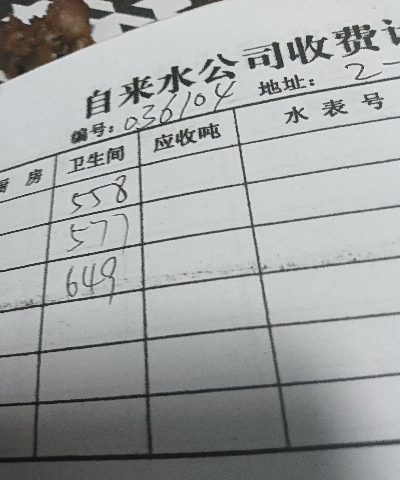 自来水公司收费
编号: 036104 地址: 2-
厨 房 卫生间 应收吨 水 表 号
558
577
649